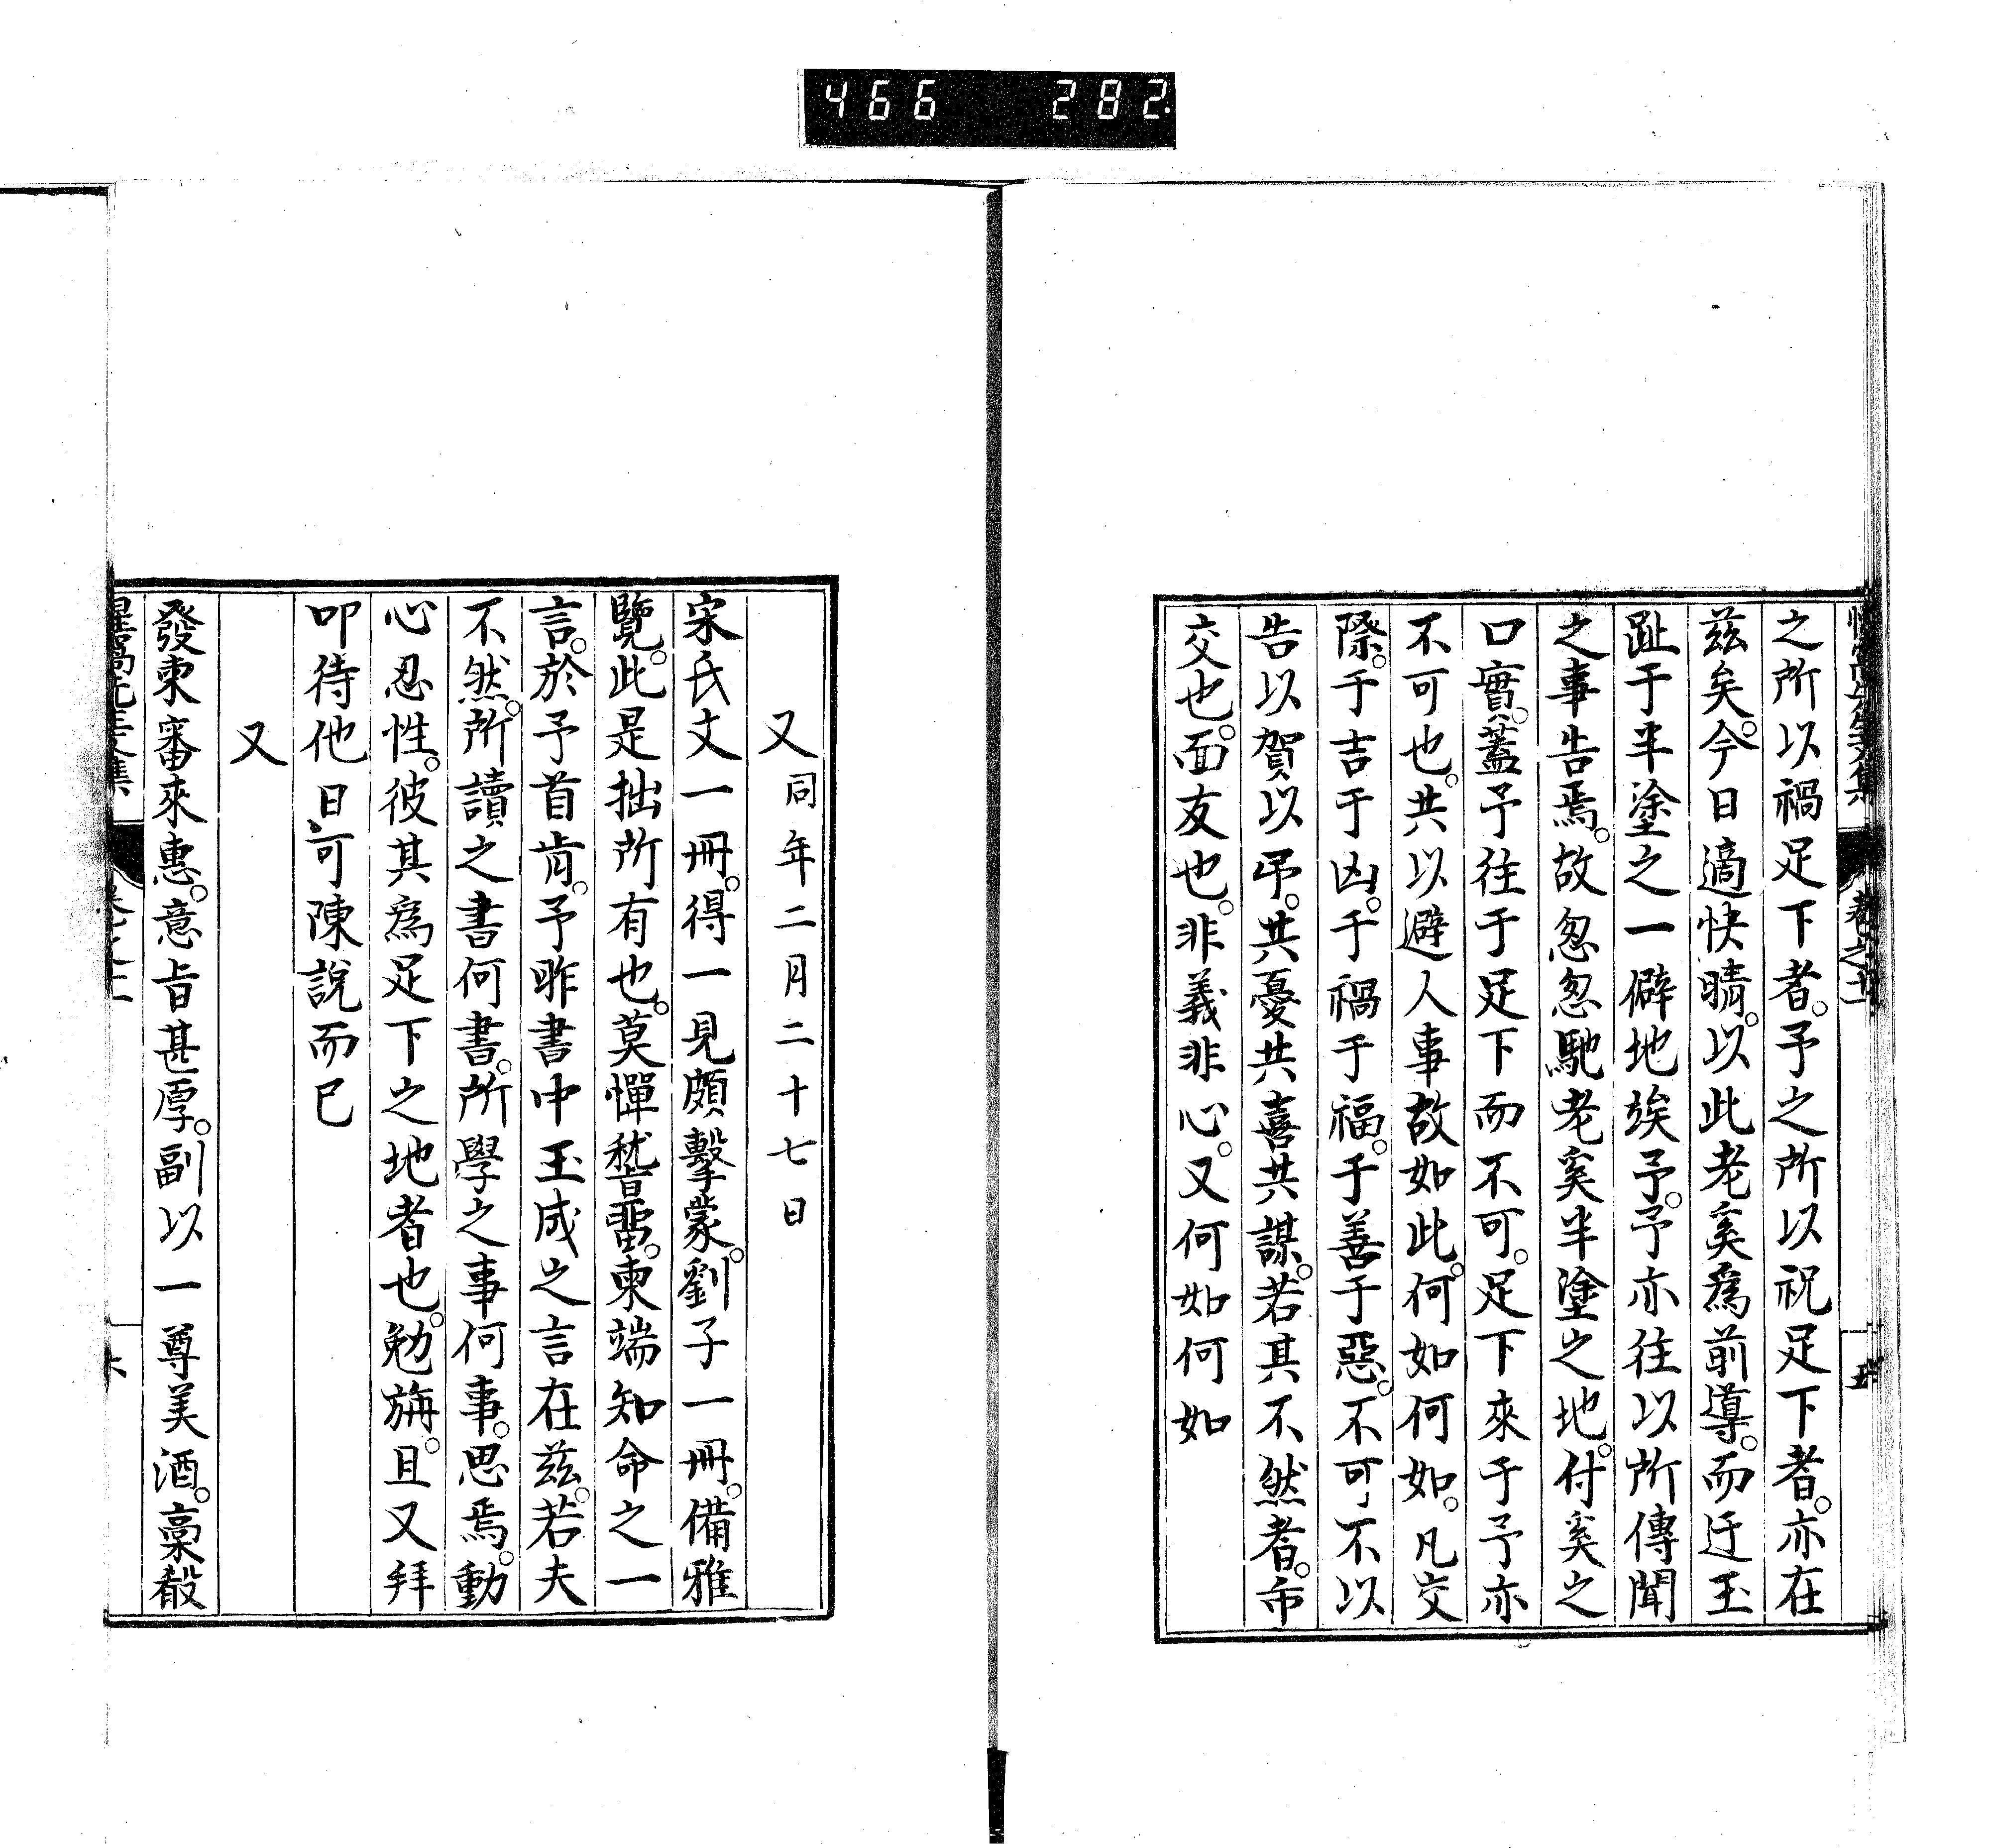 466 282
之所以禍足下者。予之所以祝足下者。亦在
茲矣。今日適快晴。以此老奚爲前導。而迂玉
趾于半塗之一僻地。竢予。予亦往以所傳聞
之事告焉。故忽忽馳老奚半塗之地。付奚之
口實。蓋予往于足下而不可。足下來于予亦
不可也。共以避人事故如此。何如何如。凡交
際。于吉于凶。于禍于福。于善于惡。不可不以
告以賀以弔。共憂共喜共謀。若其不然者。市
交也。面友也。非義非心。又何如何如
又同年二月二十七日
宋氏文一冊。得一見頗擊蒙。劉子一冊。備雅
覽。此是拙所有也。莫憚嵆畱。柬端知命之一
言。於予首肯。予昨書中玉成之言在茲。若夫
不然。所讀之書何書。所學之事何事。思焉。動
心忍性。彼其爲足下之地者也。勉旃。且又拜
叩待他日可陳說而已
又
發柬審來惠。意旨甚厚。副以一尊美酒。稾殽